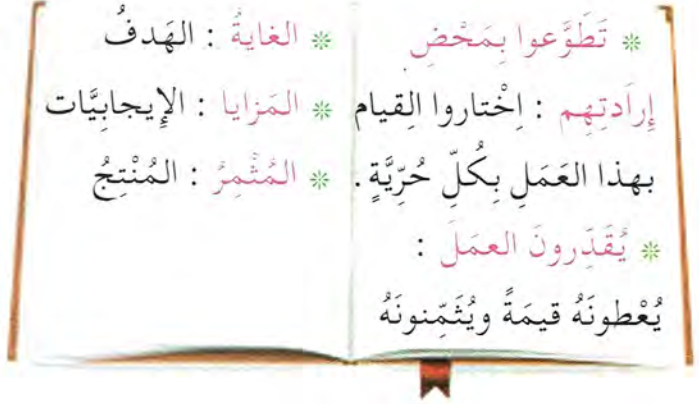 ❊ تَطَوَّعوا بِمَحْضِ
إِرادَتِهِم : اِخْتاروا القِيام
بِهذا العَمَلِ بِكُلِّ حُرِّيَّةٍ .
❊ يُقَدِّرونَ العمَلَ :
يُعْطونَهُ قيمَةً ويُثَمِّنونَهُ
❊ الغايةُ : الهَدفُ
❊ المَزايا : الإِيجابِيَّات
❊ المُثْمِرُ : المُنْتِجُ